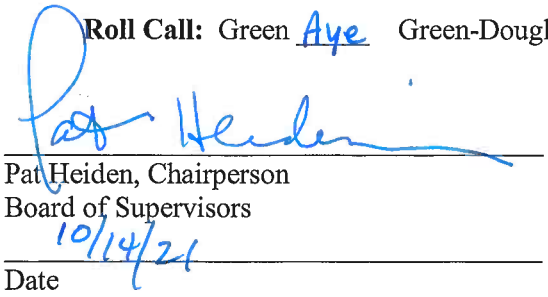 Roll Call: Green Aye Green-Dougl
Pat Heiden
Pat Heiden, Chairperson
Board of Supervisors
10/14/21
Date